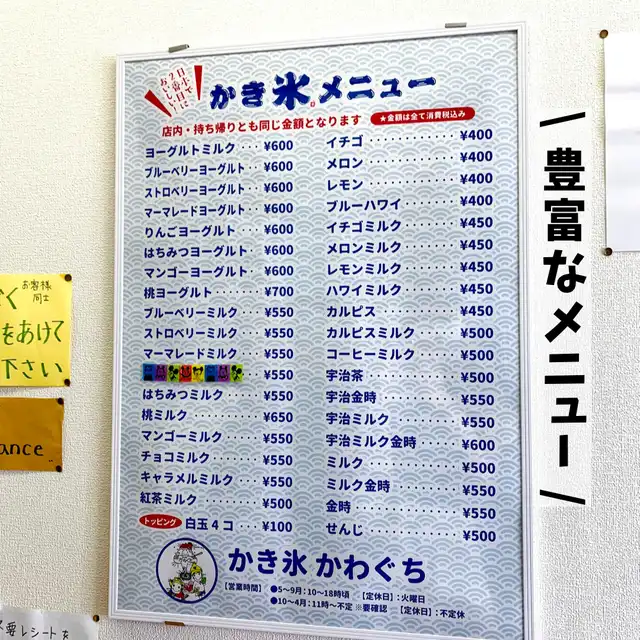 日本で
2番目に
おいしい!
かき氷メニュー
店内・持ち帰りとも同じ金額となります
★金額は全て消費税込み
ヨーグルトミルク・・・¥600
ブルーベリーヨーグルト・・¥600
ストロベリーヨーグルト・・¥600
マーマレードヨーグルト・・¥600
りんごヨーグルト・・・¥600
はちみつヨーグルト・・・¥600
マンゴーヨーグルト・・・¥600
桃ヨーグルト・・・・・¥700
ブルーベリーミルク・・・¥550
ストロベリーミルク・・・¥550
マーマレードミルク・・・¥550
¥550
はちみつミルク・・・・¥550
桃ミルク・・・・・・・¥650
マンゴーミルク・・・・¥550
チョコミルク・・・・・¥550
キャラメルミルク・・・¥550
紅茶ミルク・・・・・・¥500
トッピング 白玉4コ・・・¥100
イチゴ・・・・・・・・¥400
メロン・・・・・・・・¥400
レモン・・・・・・・・¥400
ブルーハワイ・・・・・¥400
イチゴミルク・・・・・¥450
メロンミルク・・・・・¥450
レモンミルク・・・・・¥450
ハワイミルク・・・・・¥450
カルピス・・・・・・・¥450
カルピスミルク・・・・¥500
コーヒーミルク・・・・¥500
宇治茶・・・・・・・・¥500
宇治金時・・・・・・・¥550
宇治ミルク・・・・・・¥550
宇治ミルク金時・・・・¥600
ミルク・・・・・・・・¥500
ミルク金時・・・・・・¥550
金時・・・・・・・・・¥550
せんじ・・・・・・・・¥500
かき氷 かわぐち
【営業時間】 ●5〜9月:10〜18時頃 【定休日】:火曜日
●10〜4月:11時〜不定 ※要確認 【定休日】:不定休
豊富なメニュー
お客様
同士
をあけて
下さい
ance
レシートを